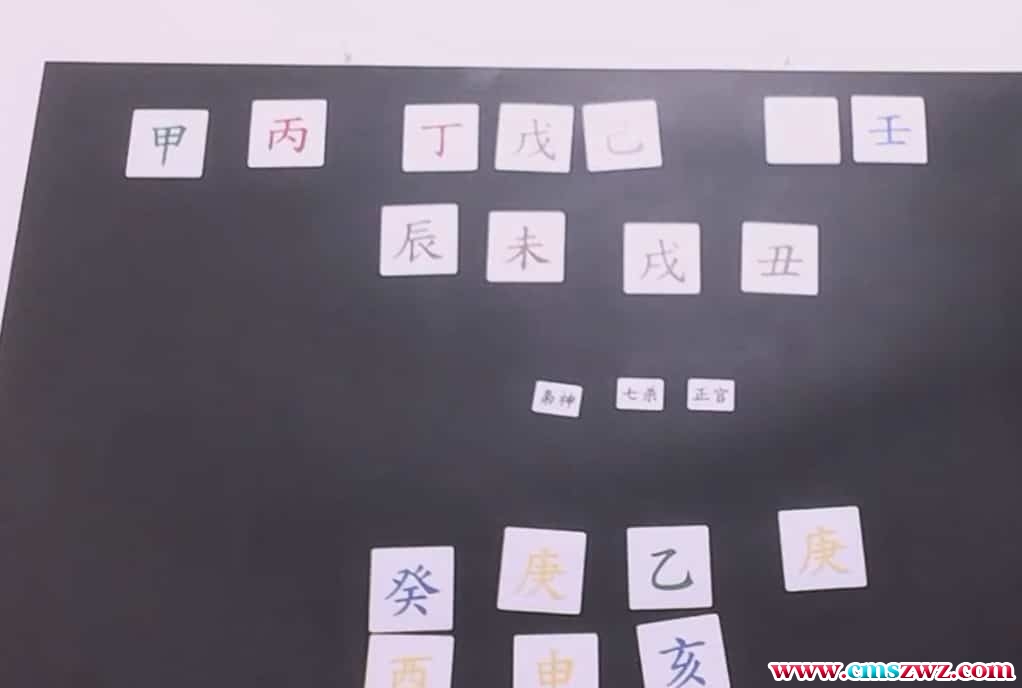 甲 丙 丁 戊 己 壬
辰 未 戌 丑
枭神 七杀 正官
癸 庚 乙 庚
酉 申 亥
www.cmszwz.com